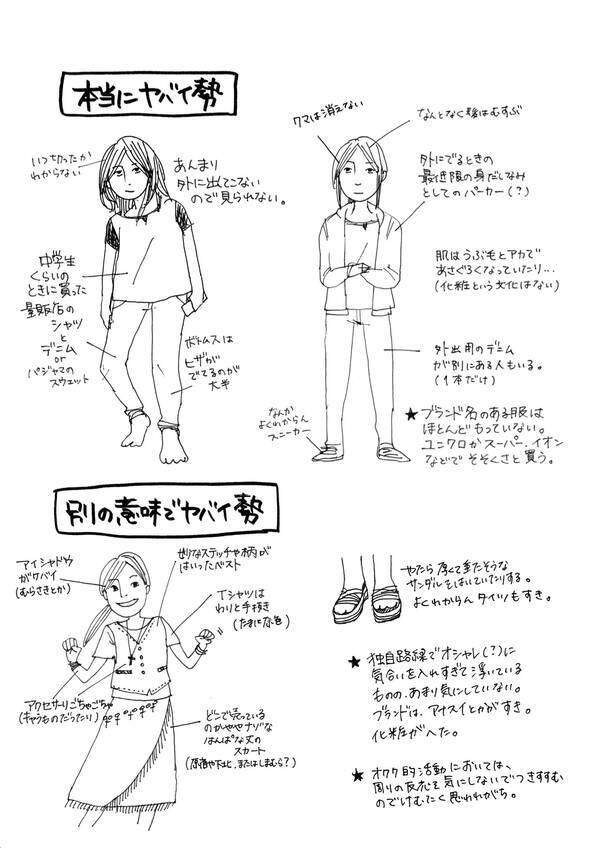 本当にヤバイ勢
いつ切ったか
わからない
あんまり
外に出てこない
ので見られない。
中学生
くらいの
ときに買った
量販店の
シャツ
と
デニム
or
パジャマの
スウェット
ボトムスは
ヒザが
でてるのが
大半
クマは消えない
なんとなく髪はむすぶ
外にでるときの
最低限の身だしなみ
としてのパーカー(?)
肌はうぶ毛とアカで
あさぐろくなっていたり…
(化粧という文化はない)
外出用のデニム
が別にある人もいる。
(1本だけ)
なんか
よくわからん
スニーカー
★ブランド名のある服は
ほとんどもっていない。
ユニクロかスーパー、イオン
などでそそくさと買う。
別の意味でヤバイ勢
アイシャドウ
がヤバイ
(むらさきとか)
妙なステッチや柄が
はいったベスト
Tシャツは
わりと手抜き
(たまに灰色)
アクセサリーごちゃごちゃ
(キャラものだったり)
どこで売っている
のかややナゾな
はんぱな丈の
スカート
(原宿や下北、またはしまむら?)
やたら厚くて重たそうな
サンダルをはいていたりする。
よくわからんタイツもすき。
★独自路線でオシャレ(?)に
気合いを入れすぎて浮いている
ものの、あまり気にしていない。
ブランドは、アナスイとかがすき。
化粧がへた。
★オタク的活動においては、
周りの反応を気にしないでつきすすむ
のでけむたく思われがち。